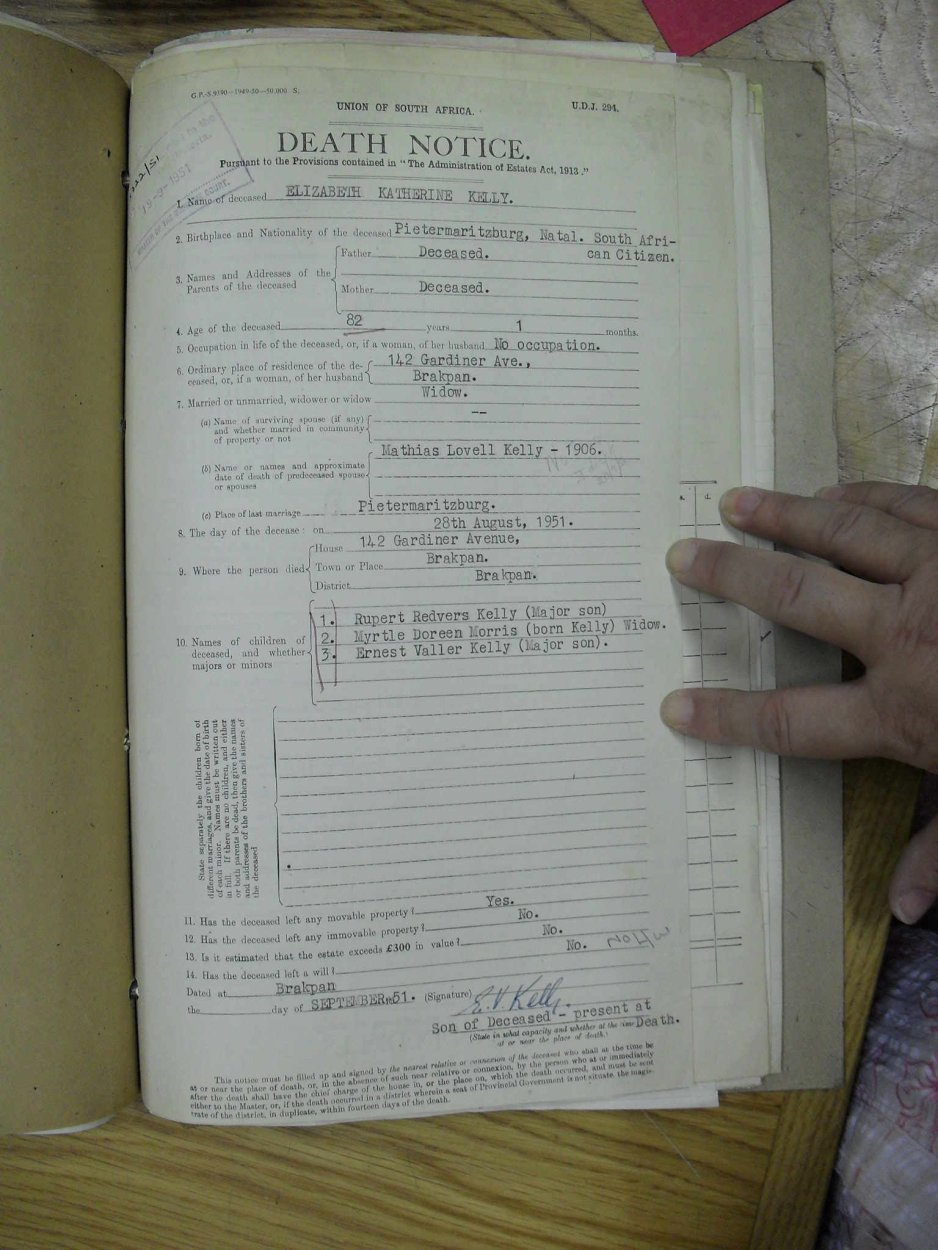 G.P.-S.9190—1949-50—50,000 S.
UNION OF SOUTH AFRICA.
U.D.J. 294.
DEATH NOTICE.
Pursuant to the Provisions contained in "The Administration of Estates Act, 1913."
19-9-1951
1. Name of deceased ELIZABETH KATHERINE KELLY.
2. Birthplace and Nationality of the deceased Pietermaritzburg, Natal. South Afri-
can Citizen.
3. Names and Addresses of the Parents of the deceased
Father Deceased.
Mother Deceased.
4. Age of the deceased 82 years 1 months.
5. Occupation in life of the deceased, or, if a woman, of her husband No occupation.
6. Ordinary place of residence of the de- 142 Gardiner Ave.,
ceased, or, if a woman, of her husband Brakpan.
7. Married or unmarried, widower or widow Widow.
(a) Name of surviving spouse (if any) --
and whether married in community
of property or not
Mathias Lovell Kelly - 1906.
(b) Name or names and approximate
date of death of predeceased spouse
or spouses
(c) Place of last marriage Pietermaritzburg.
8. The day of the decease: on 28th August, 1951.
9. Where the person died
House 142 Gardiner Avenue,
Town or Place Brakpan.
District Brakpan.
10. Names of children of
deceased, and whether
majors or minors
1. Rupert Redvers Kelly (Major son)
2. Myrtle Doreen Morris (born Kelly) Widow.
3. Ernest Valler Kelly (Major son).
State separately the children born of
different marriages, and give the date of birth
of each minor. Names must be written out
in full. If there are no children, and either
or both parents be dead, then give the names
and addresses of the brothers and sisters of
the deceased
11. Has the deceased left any movable property? Yes.
12. Has the deceased left any immovable property? No.
13. Is it estimated that the estate exceeds £300 in value? No.
14. Has the deceased left a will? No. No H/W
Dated at Brakpan
the day of SEPTEMBER 51. (Signature) E. V. Kelly.
Son of Deceased - present at
Death.
(State in what capacity and whether at the time
at or near the place of death.)
This notice must be filled up and signed by the nearest relative or connexion of the deceased who shall at the time be
at or near the place of death, or, in the absence of such near relative or connexion, by the person who at or immediately
after the death shall have the chief charge of the house in, or the place on, which the death occurred, and must be sent
either to the Master, or, if the death occurred in a district wherein a seat of Provincial Government is not situate, the magis-
trate of the district, in duplicate, within fourteen days of the death.